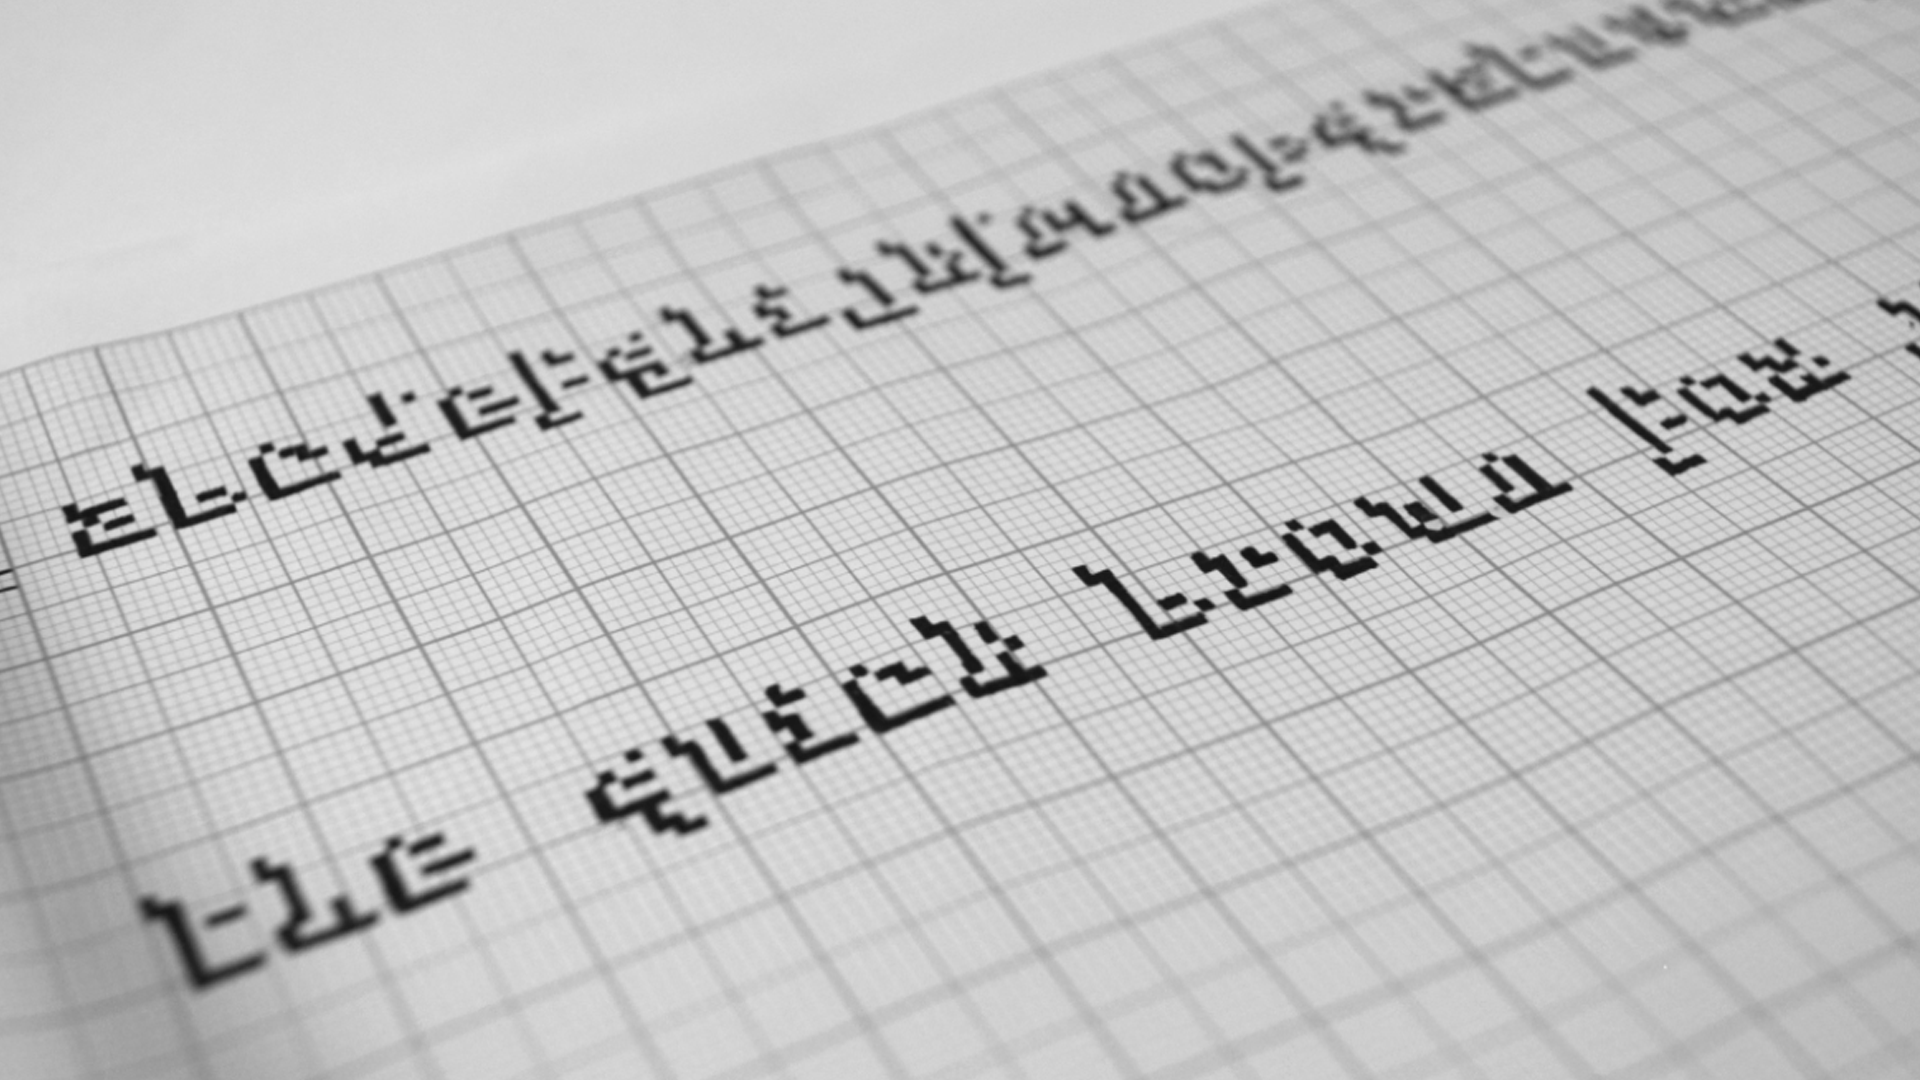 abcdefghijklmnopqrstuvw
the quick brown fox